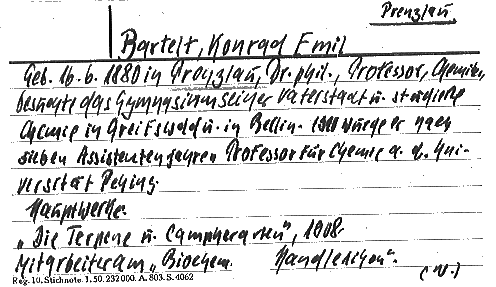 Prenzlau.
Bartelt, Konrad Emil
Geb. 16. 6. 1880 in Prenzlau, Dr. phil., Professor, Chemiker,
besucht das Gymnasium seiner Vaterstadt u. studierte
Chemie in Greifswald u. in Berlin. wurde er nach
sieben Assistentenjahren Professor für Chemie a. d. Uni-
versität Peking.
Hauptwerke.
„Die Terpene u. Campherarten", 1908.
Mitarbeiter am „Biochem. Handlexikon".
(W.)
Reg. 10. Stichnote. 1. 50. 232 000. A. 803. S. 4062